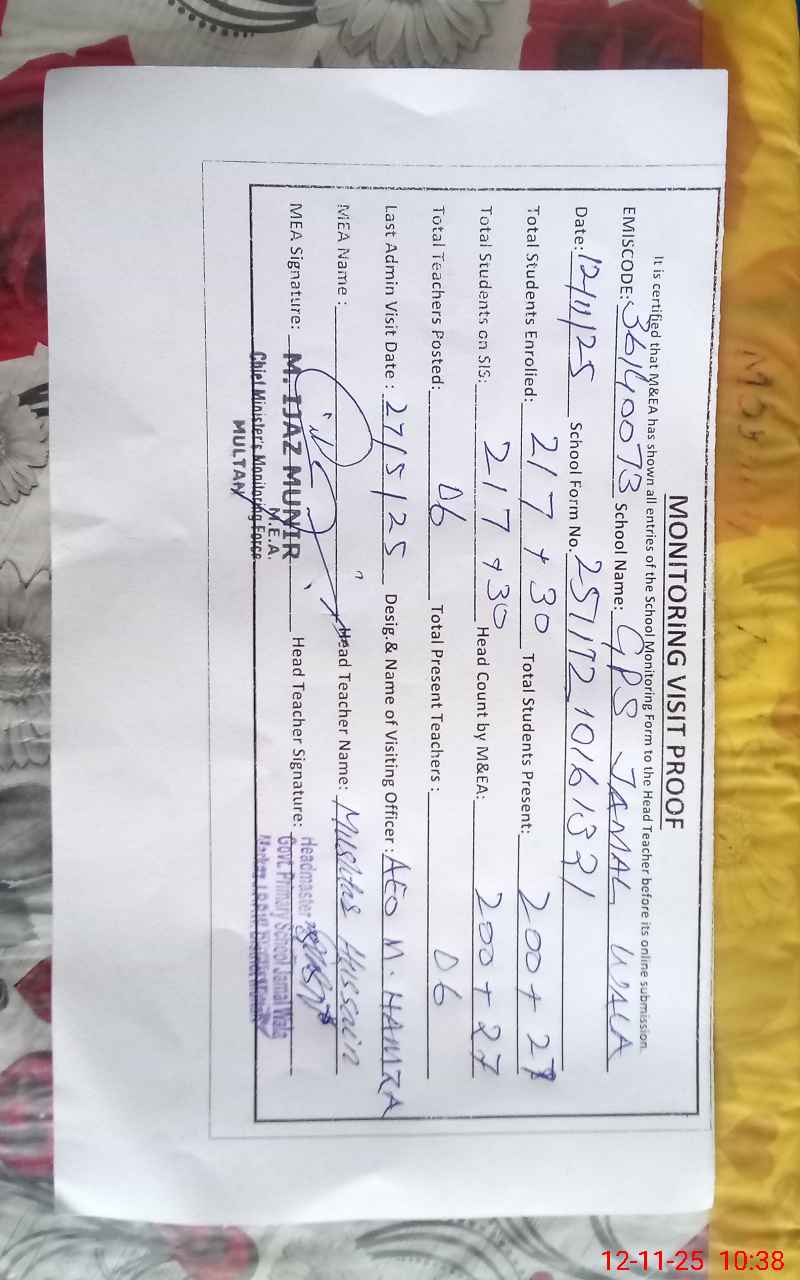 MONITORING VISIT PROOF
It is certified that M&EA has shown all entries of the School Monitoring Form to the Head Teacher before its online submission.
EMISCODE: 36140073 School Name: GPS JAMAL WALA
Date: 12/11/25 School Form No. 251172 10161331
Total Students Enrolled: 217 + 30 Total Students Present: 200 + 27
Total Students on SIS: 217 + 30 Head Count by M&EA: 200 + 27
Total Teachers Posted: 06 Total Present Teachers : 06
Last Admin Visit Date : 27/5/25 Desig.& Name of Visiting Officer : AEO M. HAMZA
MEA Name : Head Teacher Name: Mushtaq Hussain
MEA Signature: Head Teacher Signature:
M. IJAZ MUNIR
M.E.A.
Chief Minister's Monitoring Force
MULTAN
Headmaster
Govt. Primary School Jamal Wala
12-11-25 10:38